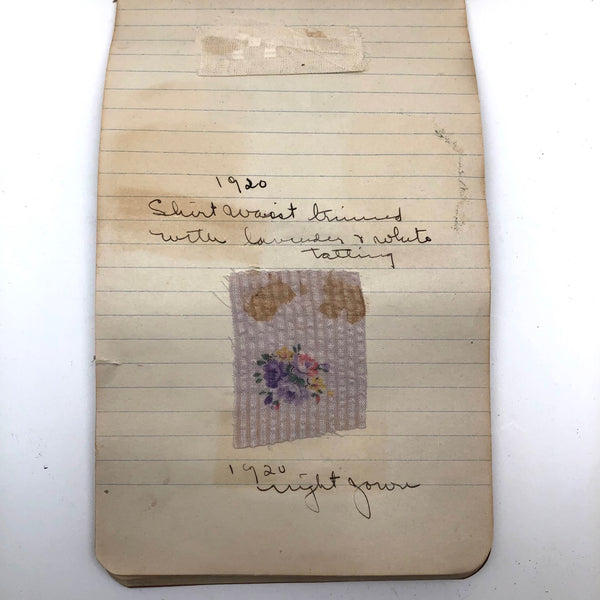 1920
Shirt Waist trimmed
with lavender & white
tatting
1920
night gown